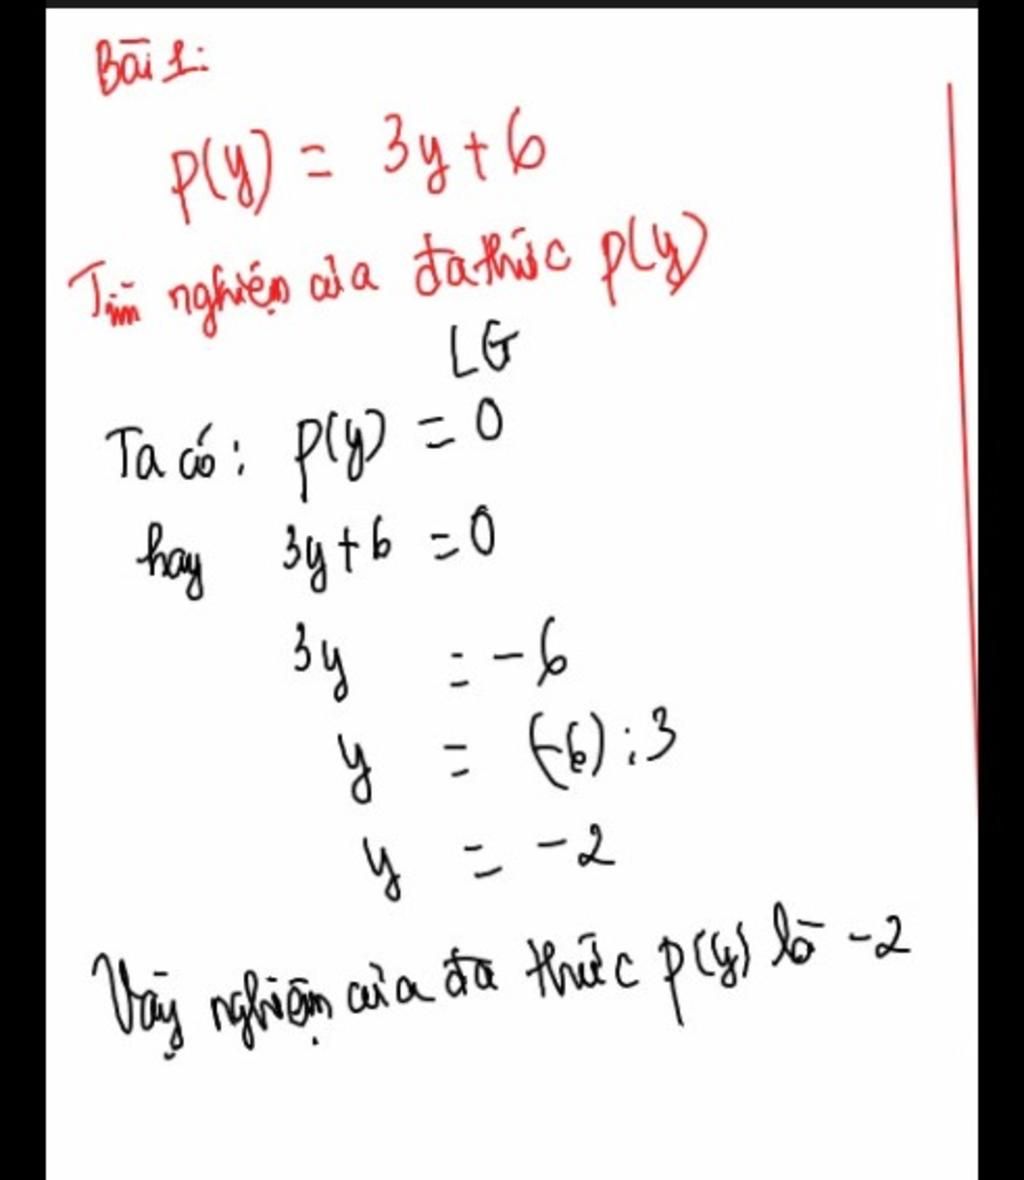 Bài 1:
P(y) = 3y + 6
Tìm nghiệm của đa thức P(y)
LG
Ta có: P(y) = 0
hay 3y + 6 = 0
3y = -6
y = (-6) : 3
y = -2
Vậy nghiệm của đa thức P(y) là -2